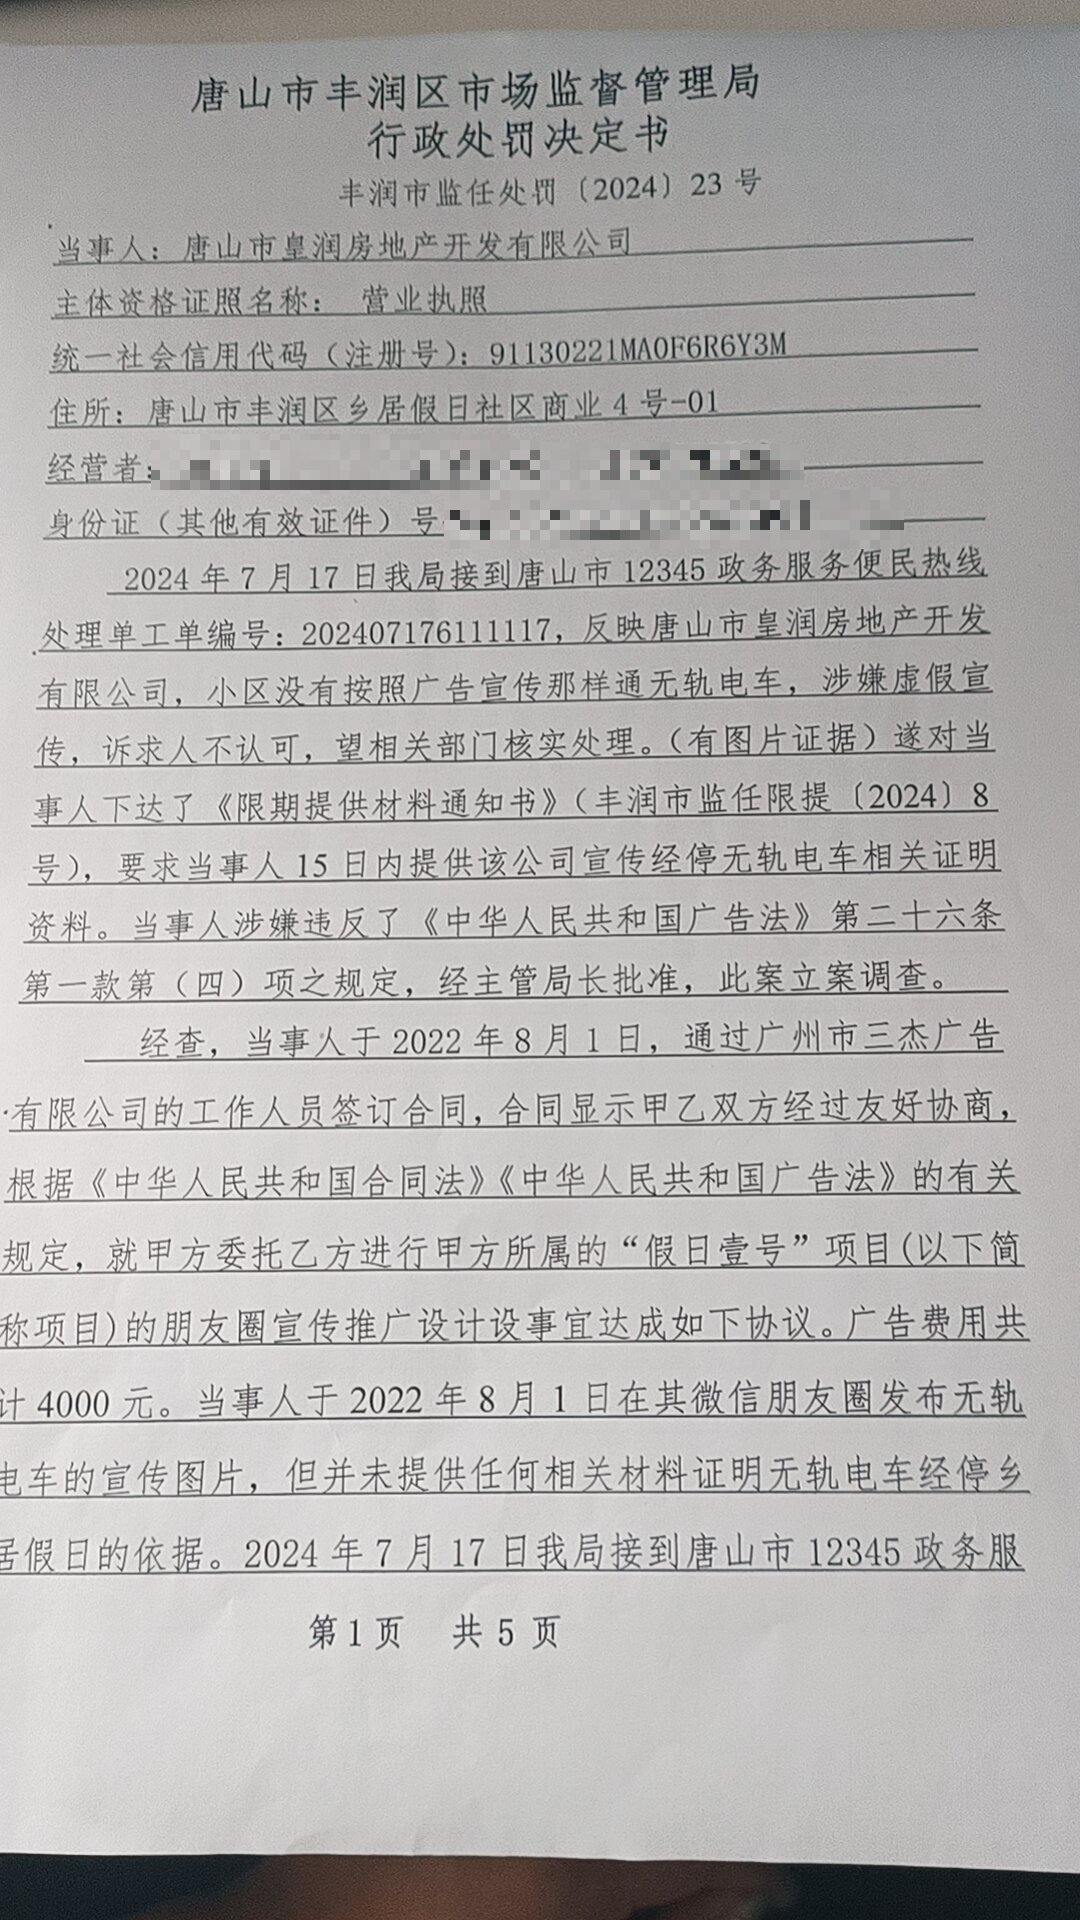 唐山市丰润区市场监督管理局
行政处罚决定书
丰润市监任处罚〔2024〕23号
当事人：唐山市皇润房地产开发有限公司
主体资格证照名称： 营业执照
统一社会信用代码（注册号）：91130221MA0F6R6Y3M
住所：唐山市丰润区乡居假日社区商业4号-01
经营者：
身份证（其他有效证件）号
2024年7月17日我局接到唐山市12345政务服务便民热线
处理单工单编号：202407176111117，反映唐山市皇润房地产开发
有限公司，小区没有按照广告宣传那样通无轨电车，涉嫌虚假宣
传，诉求人不认可，望相关部门核实处理。（有图片证据）遂对当
事人下达了《限期提供材料通知书》（丰润市监任限提〔2024〕8
号），要求当事人15日内提供该公司宣传经停无轨电车相关证明
资料。当事人涉嫌违反了《中华人民共和国广告法》第二十六条
第一款第（四）项之规定，经主管局长批准，此案立案调查。
经查，当事人于2022年8月1日，通过广州市三杰广告
有限公司的工作人员签订合同，合同显示甲乙双方经过友好协商，
根据《中华人民共和国合同法》《中华人民共和国广告法》的有关
规定，就甲方委托乙方进行甲方所属的“假日壹号”项目(以下简
称项目)的朋友圈宣传推广设计设事宜达成如下协议。广告费用共
计4000元。当事人于2022年8月1日在其微信朋友圈发布无轨
电车的宣传图片，但并未提供任何相关材料证明无轨电车经停乡
居假日的依据。2024年7月17日我局接到唐山市12345政务服
第1页 共5页